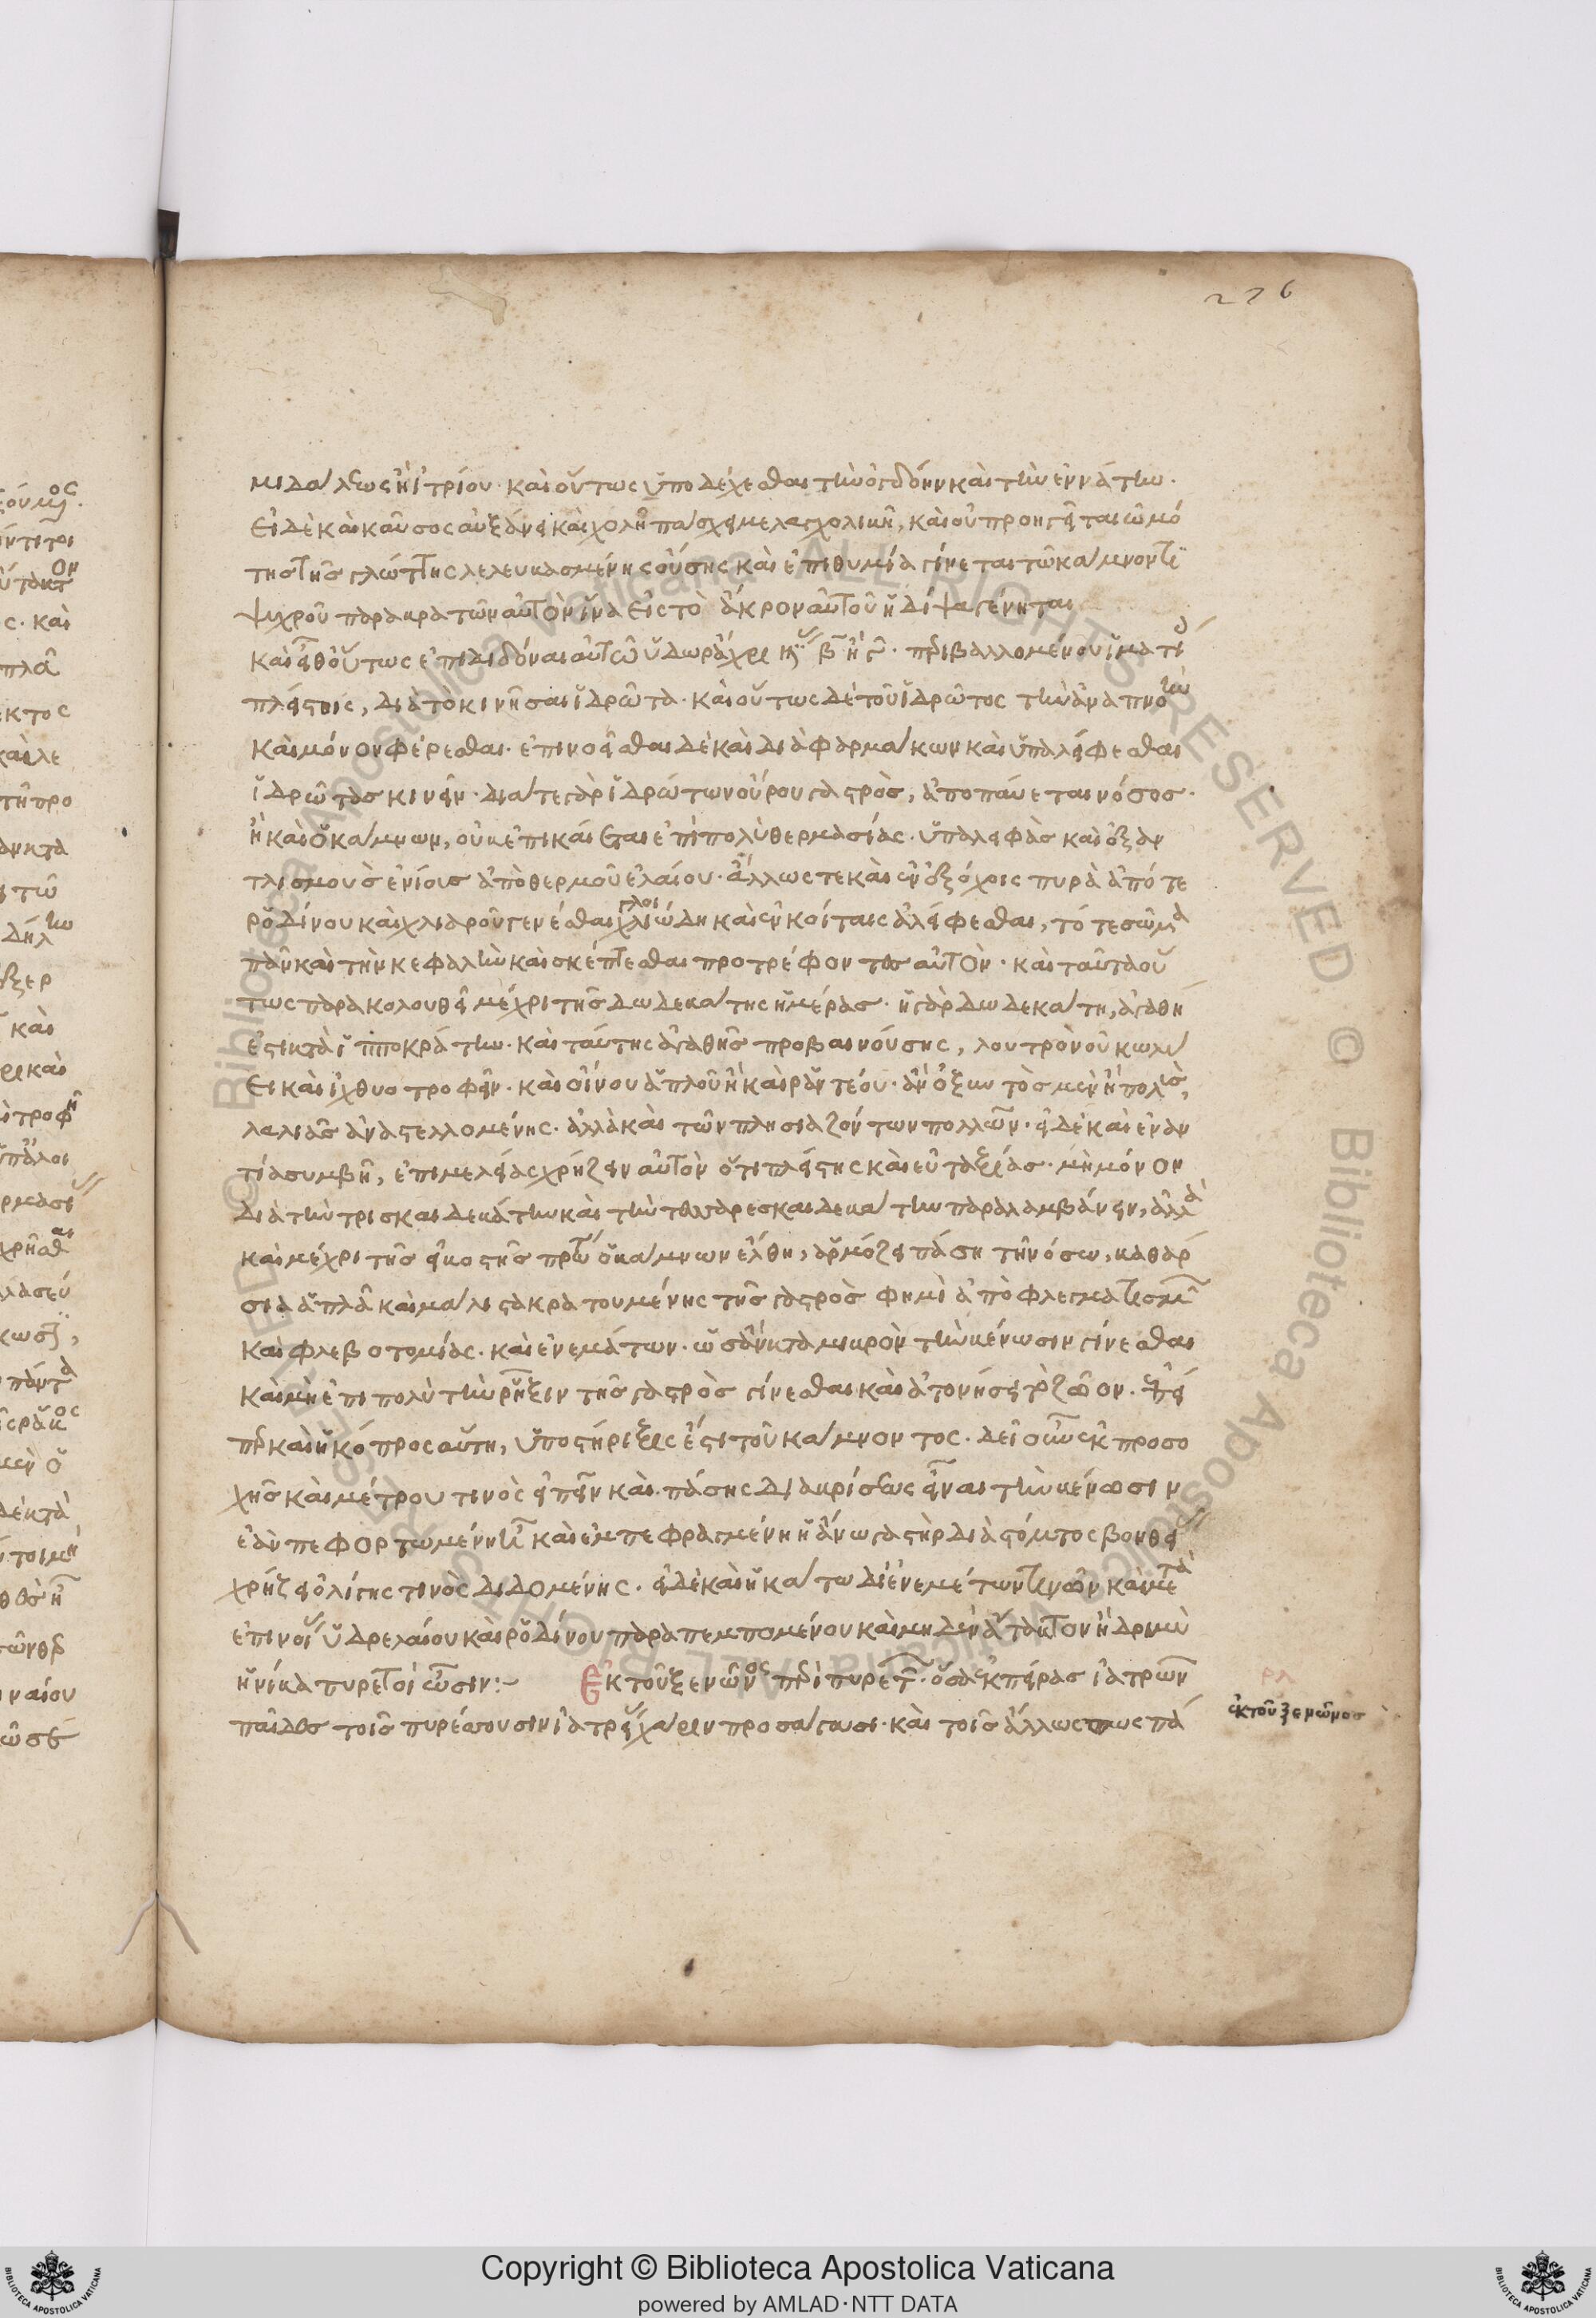 276
μιδάλεως ἢ ἰτρίου· καὶ οὕτως ὑποδέχεσθαι τὴν ὀγδόην καὶ τὴν ἐννάτην·
Εἰ δὲ καὶ καῦσος αὐξάνει καὶ χολῆ πάσχει μελαγχολικῆ, καὶ οὐ προηγεῖται ὠμό
της τῆς γλώττης λελευκασμένης οὔσης καὶ ἐπιθυμία γίνεται τῶ κάμνοντι
ψυχροῦ παρακρατῶν αὐτὸν ἵνα εἰς τὸ ἄκρον αὐτοῦ ἡ δίψα γένηται
καὶ εἶθ οὕτως ἐπιδιδόναι αὐτῶ ὕδωρ ἄχρι β ἢ γ· περιβαλλομένου ἱματίοις
πλείστοις, διὰ τὸ κινῆσαι ἱδρῶτα· καὶ οὕτως δὲ τοῦ ἱδρῶτος τὴν ἀναπνοὴν
καὶ μόνον φέρεσθαι· ἐπινοεῖσθαι δὲ καὶ διὰ φαρμάκων καὶ ὑπαλείφεσθαι
ἱδρῶτας κινεῖν· διά τε γὰρ ἱδρώτων οὔρου γαστρὸς, ἀποπαύεται νόσος·
ἢ καὶ ὁ κάμνων, οὐκ ἐπικαίεται ἐπιπολὺ θερμασίας· ὑπαλειφὰς καὶ ἐξαν
τλισμοὺς ἐνίους ἀπὸ θερμοῦ ἐλαίου· ἄλλως τε καὶ ἐν ἐξόχοις πυρὰ ἀπό τε
ῥοδίνου καὶ χλιαροῦ γενέσθαι γλοιώδη καὶ ἐν κοίταις ἀλείφεσθαι, τό τε σῶμα
πᾶν καὶ τὴν κεφαλὴν καὶ σκέπτεσθαι προτρέφοντας αὐτὸν· καὶ ταῦτα οὕ
τως παρακολουθεῖ μέχρι τῆς δωδεκάτης ἡμέρας· ἡ γὰρ δωδεκάτη, ἀγαθή
ἐστι κατὰ ἱπποκράτην· καὶ ταύτης ἀγαθῆς προβαινούσης, λουτρὸν οὐ κωλύ
ει καὶ ἰχθυοτροφεῖν· καὶ οἴνου ἁπλοῦ ἢ καὶ ῥαντέου· ἂν ὀξὺν τὸς μὲν ἢ πολὺς,
λαλιᾶς ἀναστελλομένης· ἀλλὰ καὶ τῶν πλησιαζόντων πολλῶν· εἰ δὲ καὶ ἐναν
τία συμβῆ, ἐπιμελείας χρήζειν αὐτὸν ὅτι πλείστης καὶ εὐταξίας· μὴ μόνον
διὰ τὴν τρισκαιδεκάτην καὶ τὴν τεσσαρεσκαιδεκάτην παραλαμβάνειν, ἀλλὰ
καὶ μέχρι τῆς εἰκοστῆς πρώτης ὁ κάμνων ἔλθη, ἁρμόζει πάση τῆ νόσω, καθάρ
σια ἁπλᾶ καὶ μάλιστα κρατουμένης τῆς γαστρὸς φημὶ ἀποφλεγματισμοῦ
καὶ φλεβοτομίας· καὶ ἐνεμάτων· ὡσὰν κατὰ μικρὸν τὴν κένωσιν γίνεσθαι
καὶ μὴ ἐπιπολὺ τὴν ῥῆξιν τῆς γαστρὸς γίνεσθαι καὶ ἀτονήσει τὸ ζῶον· ἐπεί
περ καὶ ἡ κόπρος αὕτη, ὑποστήριξις ἐστι τοῦ κάμνοντος· δεῖ οὖν ἐκ προσο
χῆς καὶ μέτρου τινὸς εἰπεῖν καὶ πάσης διακρίσεως εἶναι τὴν κένωσιν
ἐὰν πεφορτωμένη ἐστὶ καὶ ἐμπεφραγμένη ἡ ἄνω γαστὴρ διὰ στόματος βοηθείας
χρήζει ὀλίγης τινὸς διδομένης· εἰ δὲ καὶ ἡ κάτω δι ἐνεμάτων τινῶν κἂν μετὰ
ἐπινοίας ὑδρελαίου καὶ ῥοδίνου παραπεμπομένου καὶ μηδὲν ἄτακτον ἢ δριμὺ
ἡνίκα πυρετοί ὦσιν:-  Ἐκ τοῦ ξενῶνος περὶ πυρετῶν· ὅσα ἐκ πείρας ἰατρῶν
παῖδες τοῖς πυρέσσουσιν ἰατρείου χάριν προσάγουσι· καὶ τοῖς ἄλλως πως πά
ρλ
ἐκ τοῦ ξενῶνος
Copyright © Biblioteca Apostolica Vaticana
powered by AMLAD·NTT DATA